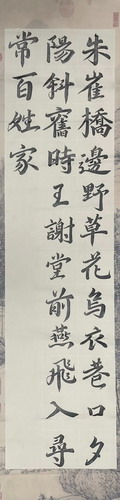 朱崔橋邊野草花烏衣巷口夕
陽斜舊時王謝堂前燕飛入尋
常百姓家